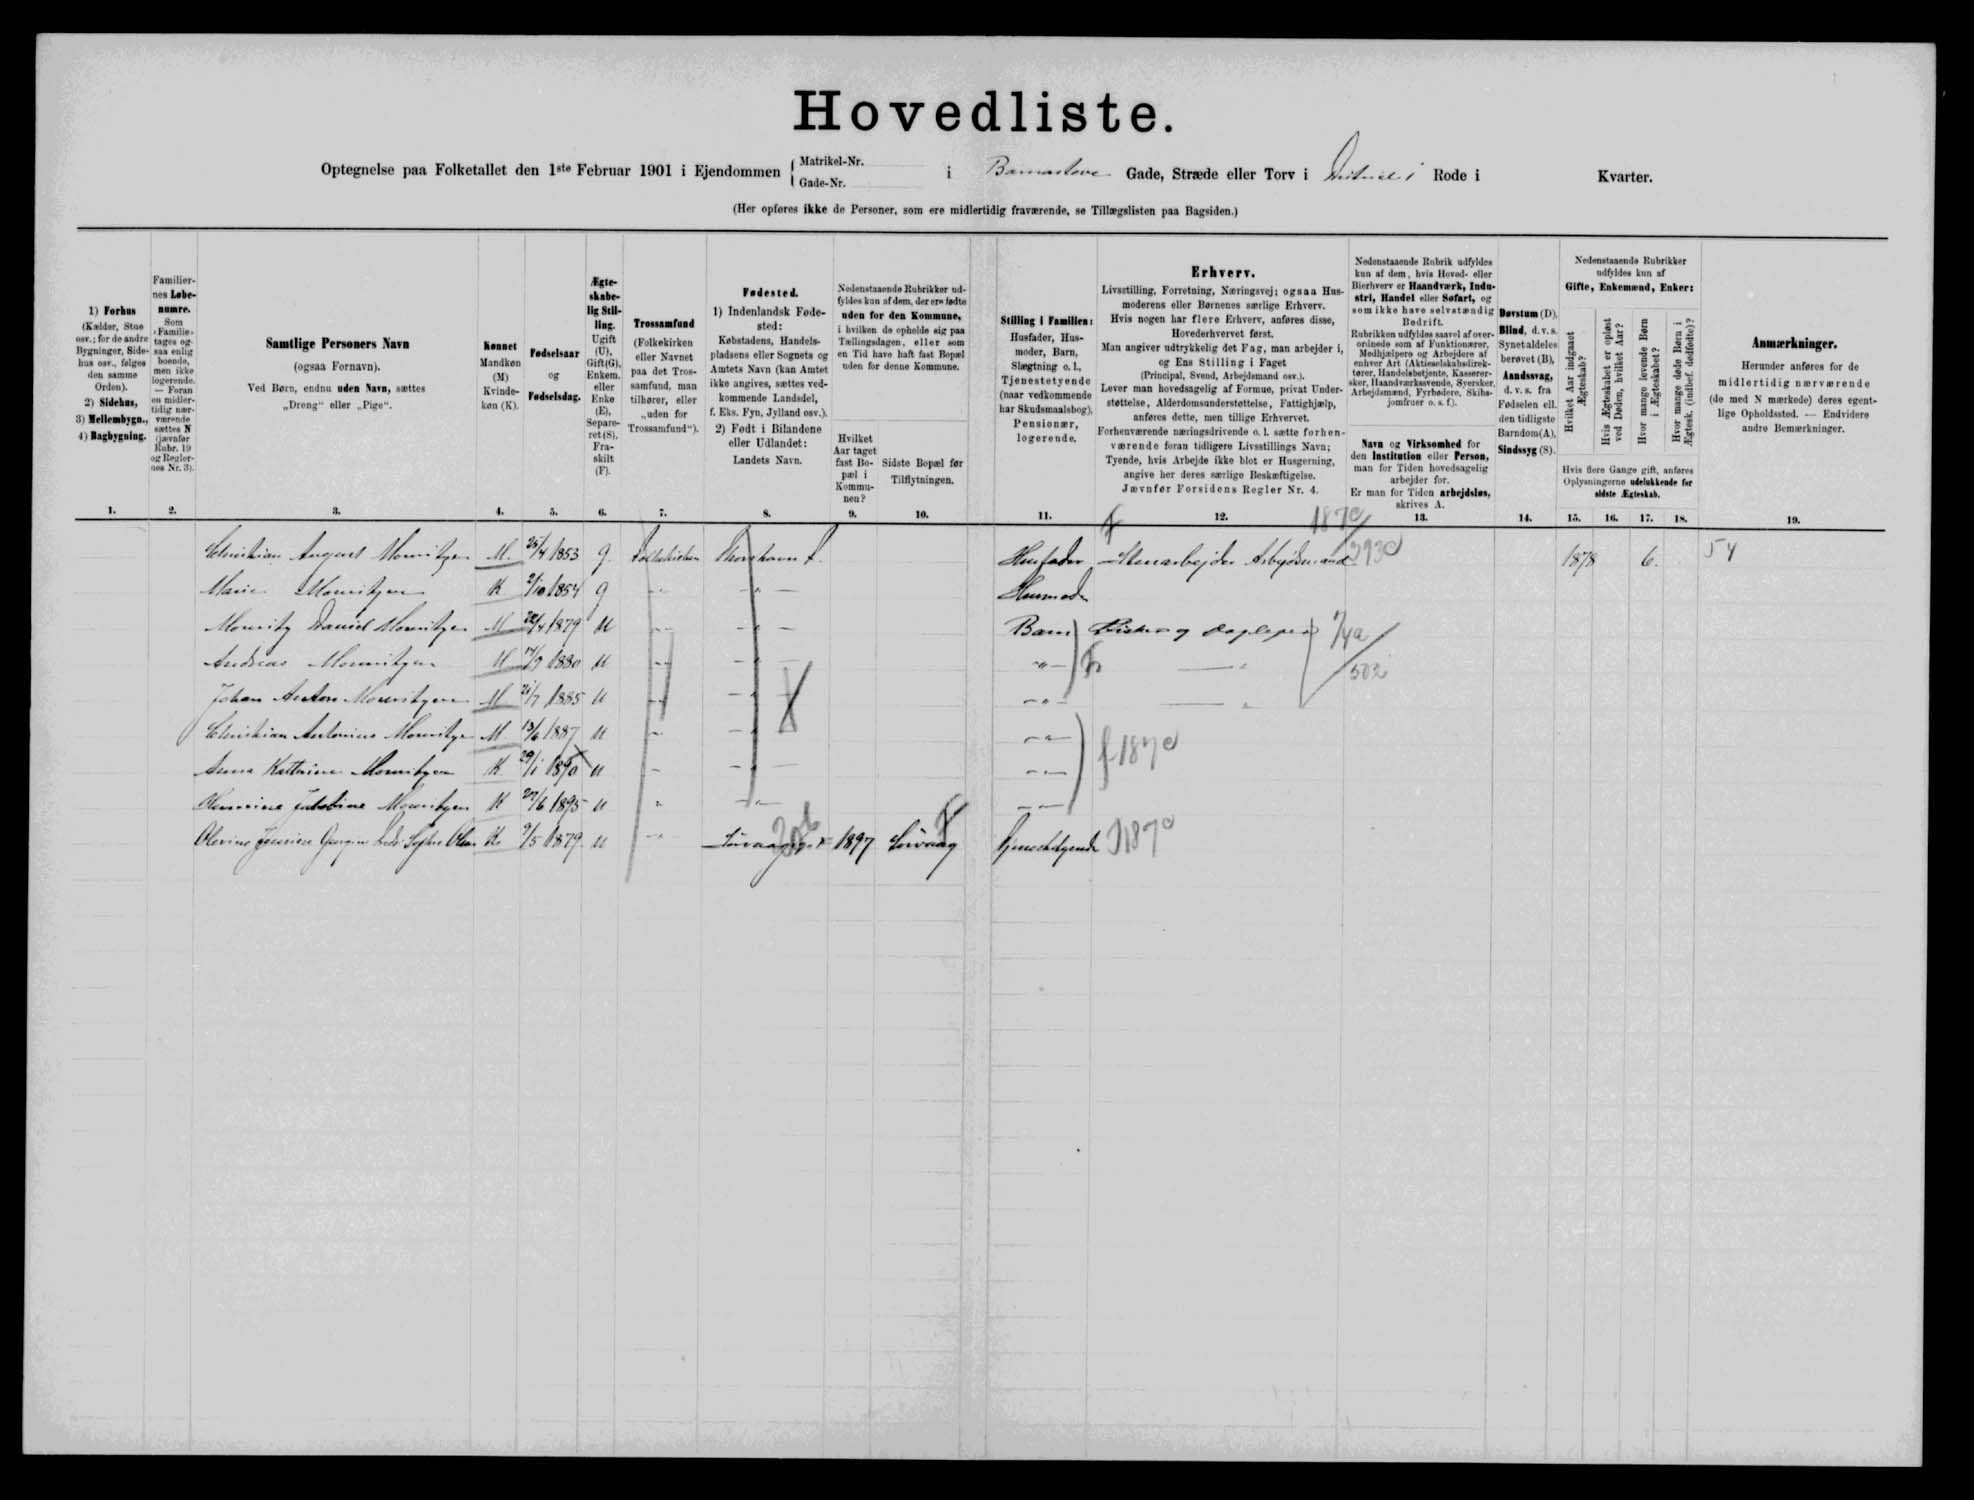 Hovedliste.
Optegnelse paa Folketallet den 1ste Februar 1901 i Ejendommen { Matrikel-Nr. Gade-Nr. i Gade, Stræde eller Torv i Rode i Kvarter.
(Her opføres ikke de Personer, som ere midlertidig fraværende, se Tillægslisten paa Bagsiden.)
1) Forhus
(Kælder, Stue
osv.; for de andre
Bygninger, Side-
hus osv., følges
den samme
Orden).
2) Sidehus,
3) Mellembygn.,
4) Bagbygning.
1.
Familier-
nes Løbe-
numre.
Som
»Familie«
tages og-
saa enlig
boende,
men ikke
logerende.
— Foran
en midler-
tidig nær-
værende
sættes N
(jævnfør
Rubr. 19
og Regler-
nes Nr. 3).
2.
Samtlige Personers Navn
(ogsaa Fornavn).
Ved Børn, endnu uden Navn, sættes
„Dreng" eller „Pige".
3.
Kønnet
Mandkøn
(M)
Kvinde-
køn (K).
4.
Fødselsaar
og
Fødselsdag.
5.
Ægte-
skabe-
lig Stil-
ling.
Ugift
(U),
Gift(G),
Enkem.
eller
Enke
(E),
Separe-
ret (S),
Fra-
skilt
(F).
6.
Trossamfund
(Folkekirken
eller Navnet
paa det Tros-
samfund, man
tilhører, eller
„uden for
Trossamfund").
7.
Fødested.
1) Indenlandsk Føde-
sted:
Købstadens, Handels-
pladsens eller Sognets og
Amtets Navn (kan Amtet
ikke angives, sættes ved-
kommende Landsdel,
f. Eks. Fyn, Jylland osv.).
2) Født i Bilandene
eller Udlandet:
Landets Navn.
8.
Nedenstaaende Rubrikker ud-
fyldes kun af dem, der ere fødte
uden for den Kommune,
i hvilken de opholde sig paa
Tællingsdagen, eller som
en Tid have haft fast Bopæl
uden for denne Kommune.
Hvilket
Aar taget
fast Bo-
pæl i
Kommu-
nen?
9.
Sidste Bopæl før
Tilflytningen.
10.
Stilling i Familien:
Husfader, Hus-
moder, Barn,
Slægtning o. l.,
Tjenestetyende
(naar vedkommende
har Skudsmaalsbog),
Pensionær,
logerende.
11.
Erhverv.
Livsstilling, Forretning, Næringsvej; ogsaa Hus-
moderens eller Børnenes særlige Erhverv.
Hvis nogen har flere Erhverv, anføres disse,
Hovederhvervet først.
Man angiver udtrykkelig det Fag, man arbejder i,
og Ens Stilling i Faget
(Principal, Svend, Arbejdsmand osv.).
Lever man hovedsagelig af Formue, privat Under-
støttelse, Alderdomsunderstøttelse, Fattighjælp,
anføres dette, men tillige Erhvervet.
Forhenværende næringsdrivende o. l. sætte forhen-
værende foran tidligere Livsstillings Navn;
Tyende, hvis Arbejde ikke blot er Husgerning,
angive her deres særlige Beskæftigelse.
Jævnfør Forsidens Regler Nr. 4.
12.
Nedenstaaende Rubrik udfyldes
kun af dem, hvis Hoved- eller
Bierhverv er Haandværk, Indu-
stri, Handel eller Søfart, og
som ikke have selvstændig
Bedrift.
Rubrikken udfyldes saavel af over-
ordnede som af Funktionærer,
Medhjælpere og Arbejdere af
enhver Art (Aktieselskabsdirek-
tører, Handelsbetjente, Kasserer-
sker, Haandværkssvende, Syersker,
Arbejdsmænd, Fyrbødere, Skibs-
jomfruer o. s. f.).
Navn og Virksomhed for
den Institution eller Person,
man for Tiden hovedsagelig
arbejder for.
Er man for Tiden arbejdsløs,
skrives A.
13.
Døvstum (D),
Blind, d. v. s.
Synet aldeles
berøvet (B),
Aandssvag,
d. v. s. fra
Fødselen ell.
den tidligste
Barndom (A),
Sindssyg (S).
14.
Nedenstaaende Rubrikker
udfyldes kun af
Gifte, Enkemænd, Enker:
Hvilket Aar indgaaet Ægteskab?
Hvis Ægteskabet er opløst ved Døden, hvilket Aar?
Hvor mange levende Børn i Ægteskabet?
Hvor mange døde Børn i Ægtesk. (indbef. dødfødte)?
Hvis flere Gange gift, anføres
Oplysningerne udelukkende for
sidste Ægteskab.
15. 16. 17. 18.
Anmærkninger.
Herunder anføres for de
midlertidig nærværende
(de med N mærkede) deres egent-
lige Opholdssted. — Endvidere
andre Bemærkninger.
19.
Christian August Mouritzen M 25/4 1853 G Folkekirken Thorshavn Husfader Stenarbejder Arbejdsmand 1878 6. 54
Marie Mouritzen K 2/10 1854 G Husmoder
Mouritz Daniel Mouritzen M 22/4 1879 U Barn Fisker og Daglejer
Andreas Mouritzen M 1880 U
Johan Anton Mouritzen M 21/7 1885 U
Christian Antonius Mouritzen M 13/6 1887 U
Anna Kathrine Mouritzen K 29/1 1890 U
Jakobine Mouritzen K 27/6 1895 U
Olsen K 9/5 1879 U 1897 Sørvaag Tjenestetyende